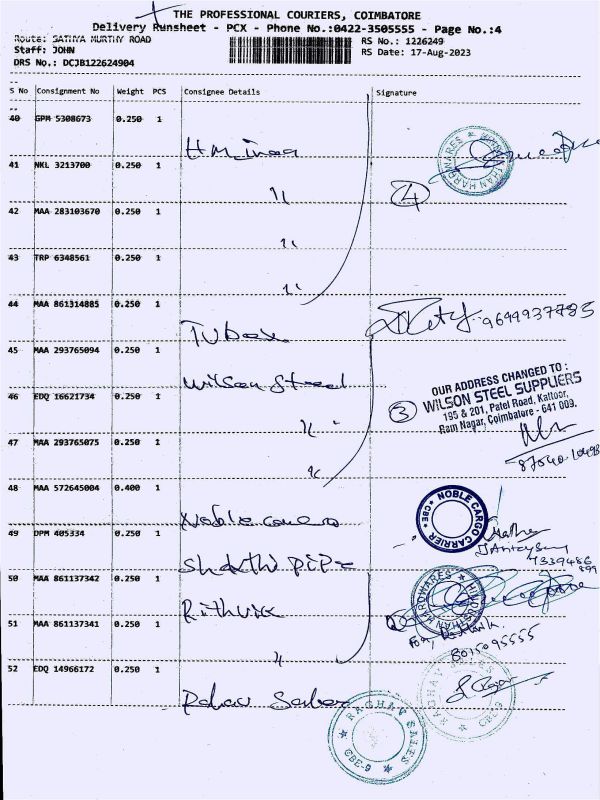 THE PROFESSIONAL COURIERS, COIMBATORE
Delivery Runsheet - PCX - Phone No.:0422-3505555 - Page No.:4
Route: SATHYA MURTHY ROAD
RS No.: 1226249
Staff: JOHN
RS Date: 17-Aug-2023
DRS No.: DCJB122624904
S No Consignment No Weight PCS Consignee Details Signature
40 GPM 5308673 0.250 1
41 NKL 3213700 0.250 1
④
42 MAA 283103670 0.250 1
43 TRP 6348561 0.250 1
44 MAA 861314885 0.250 1
9699937785
45 MAA 293765094 0.250 1
Wilson Steel
OUR ADDRESS CHANGED TO :
WILSON STEEL SUPPLIERS
195 & 201, Patel Road, Kattoor,
Ram Nagar, Coimbatore - 641 009.
46 EDQ 16621734 0.250 1
③
47 MAA 293765075 0.250 1
48 MAA 572645004 0.400 1
NOBLE CARGO CARRIER
CBE
49 DPM 405334 0.250 1
Shakthi Pipe
50 MAA 861137342 0.250 1
HINDUSTHAN HARDWARES
Rithvik
51 MAA 861137341 0.250 1
8015095555
52 EDQ 14966172 0.250 1
RAGHAV SALES
CBE-9
RAGHAV SALES
CBE-9